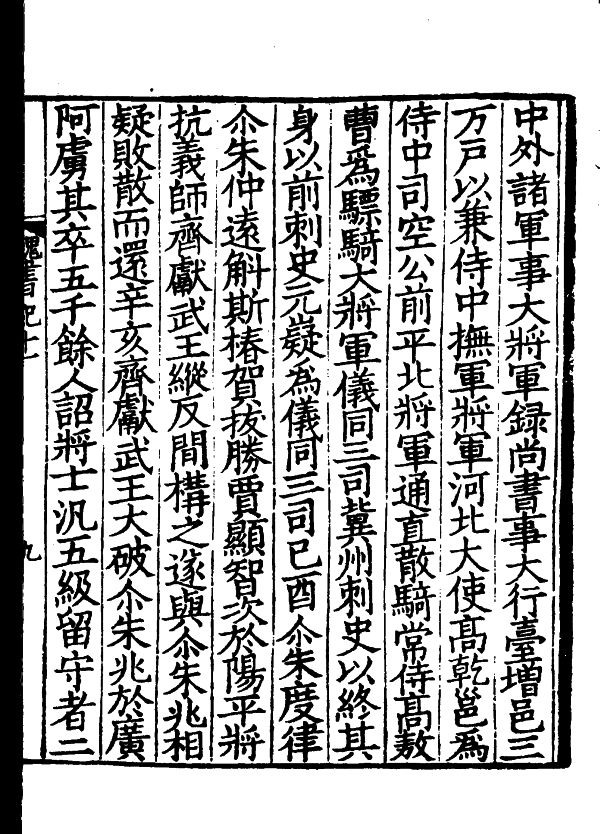 中外諸軍事大將軍録尚書事大行臺增邑三
万戸以兼侍中撫軍將軍河北大使髙乾邕爲
侍中司空公前平北將軍通直散騎常侍髙敖
曹爲驃騎大將軍儀同三司冀州刺史以終其
身以前刺史元嶷爲儀同三司己酉尒朱度律
尒朱仲遠斛斯椿賀拔勝賈顯智次於陽平將
抗義師齊獻武王縱反間構之遂與尒朱兆相
疑敗散而還辛亥齊獻武王大破尒朱兆於廣
阿虜其卒五千餘人詔將士汎五級留守者二
魏書紀十一
九